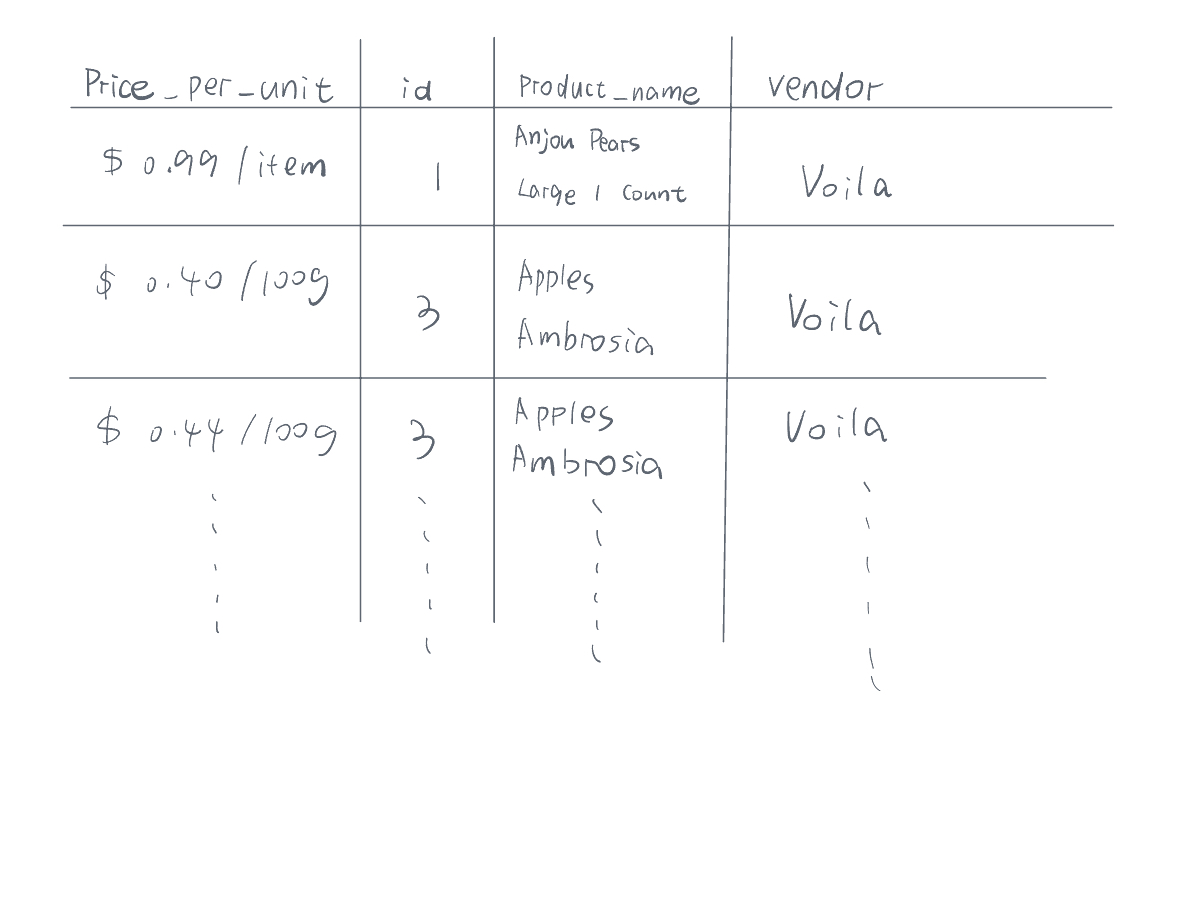 Price_per_unit id Product_name vendor
$ 0.99 /item 1 Anjou Pears Large 1 Count Voila
$ 0.40 /100g 3 Apples Ambrosia Voila
$ 0.44 /100g 3 Apples Ambrosia Voila